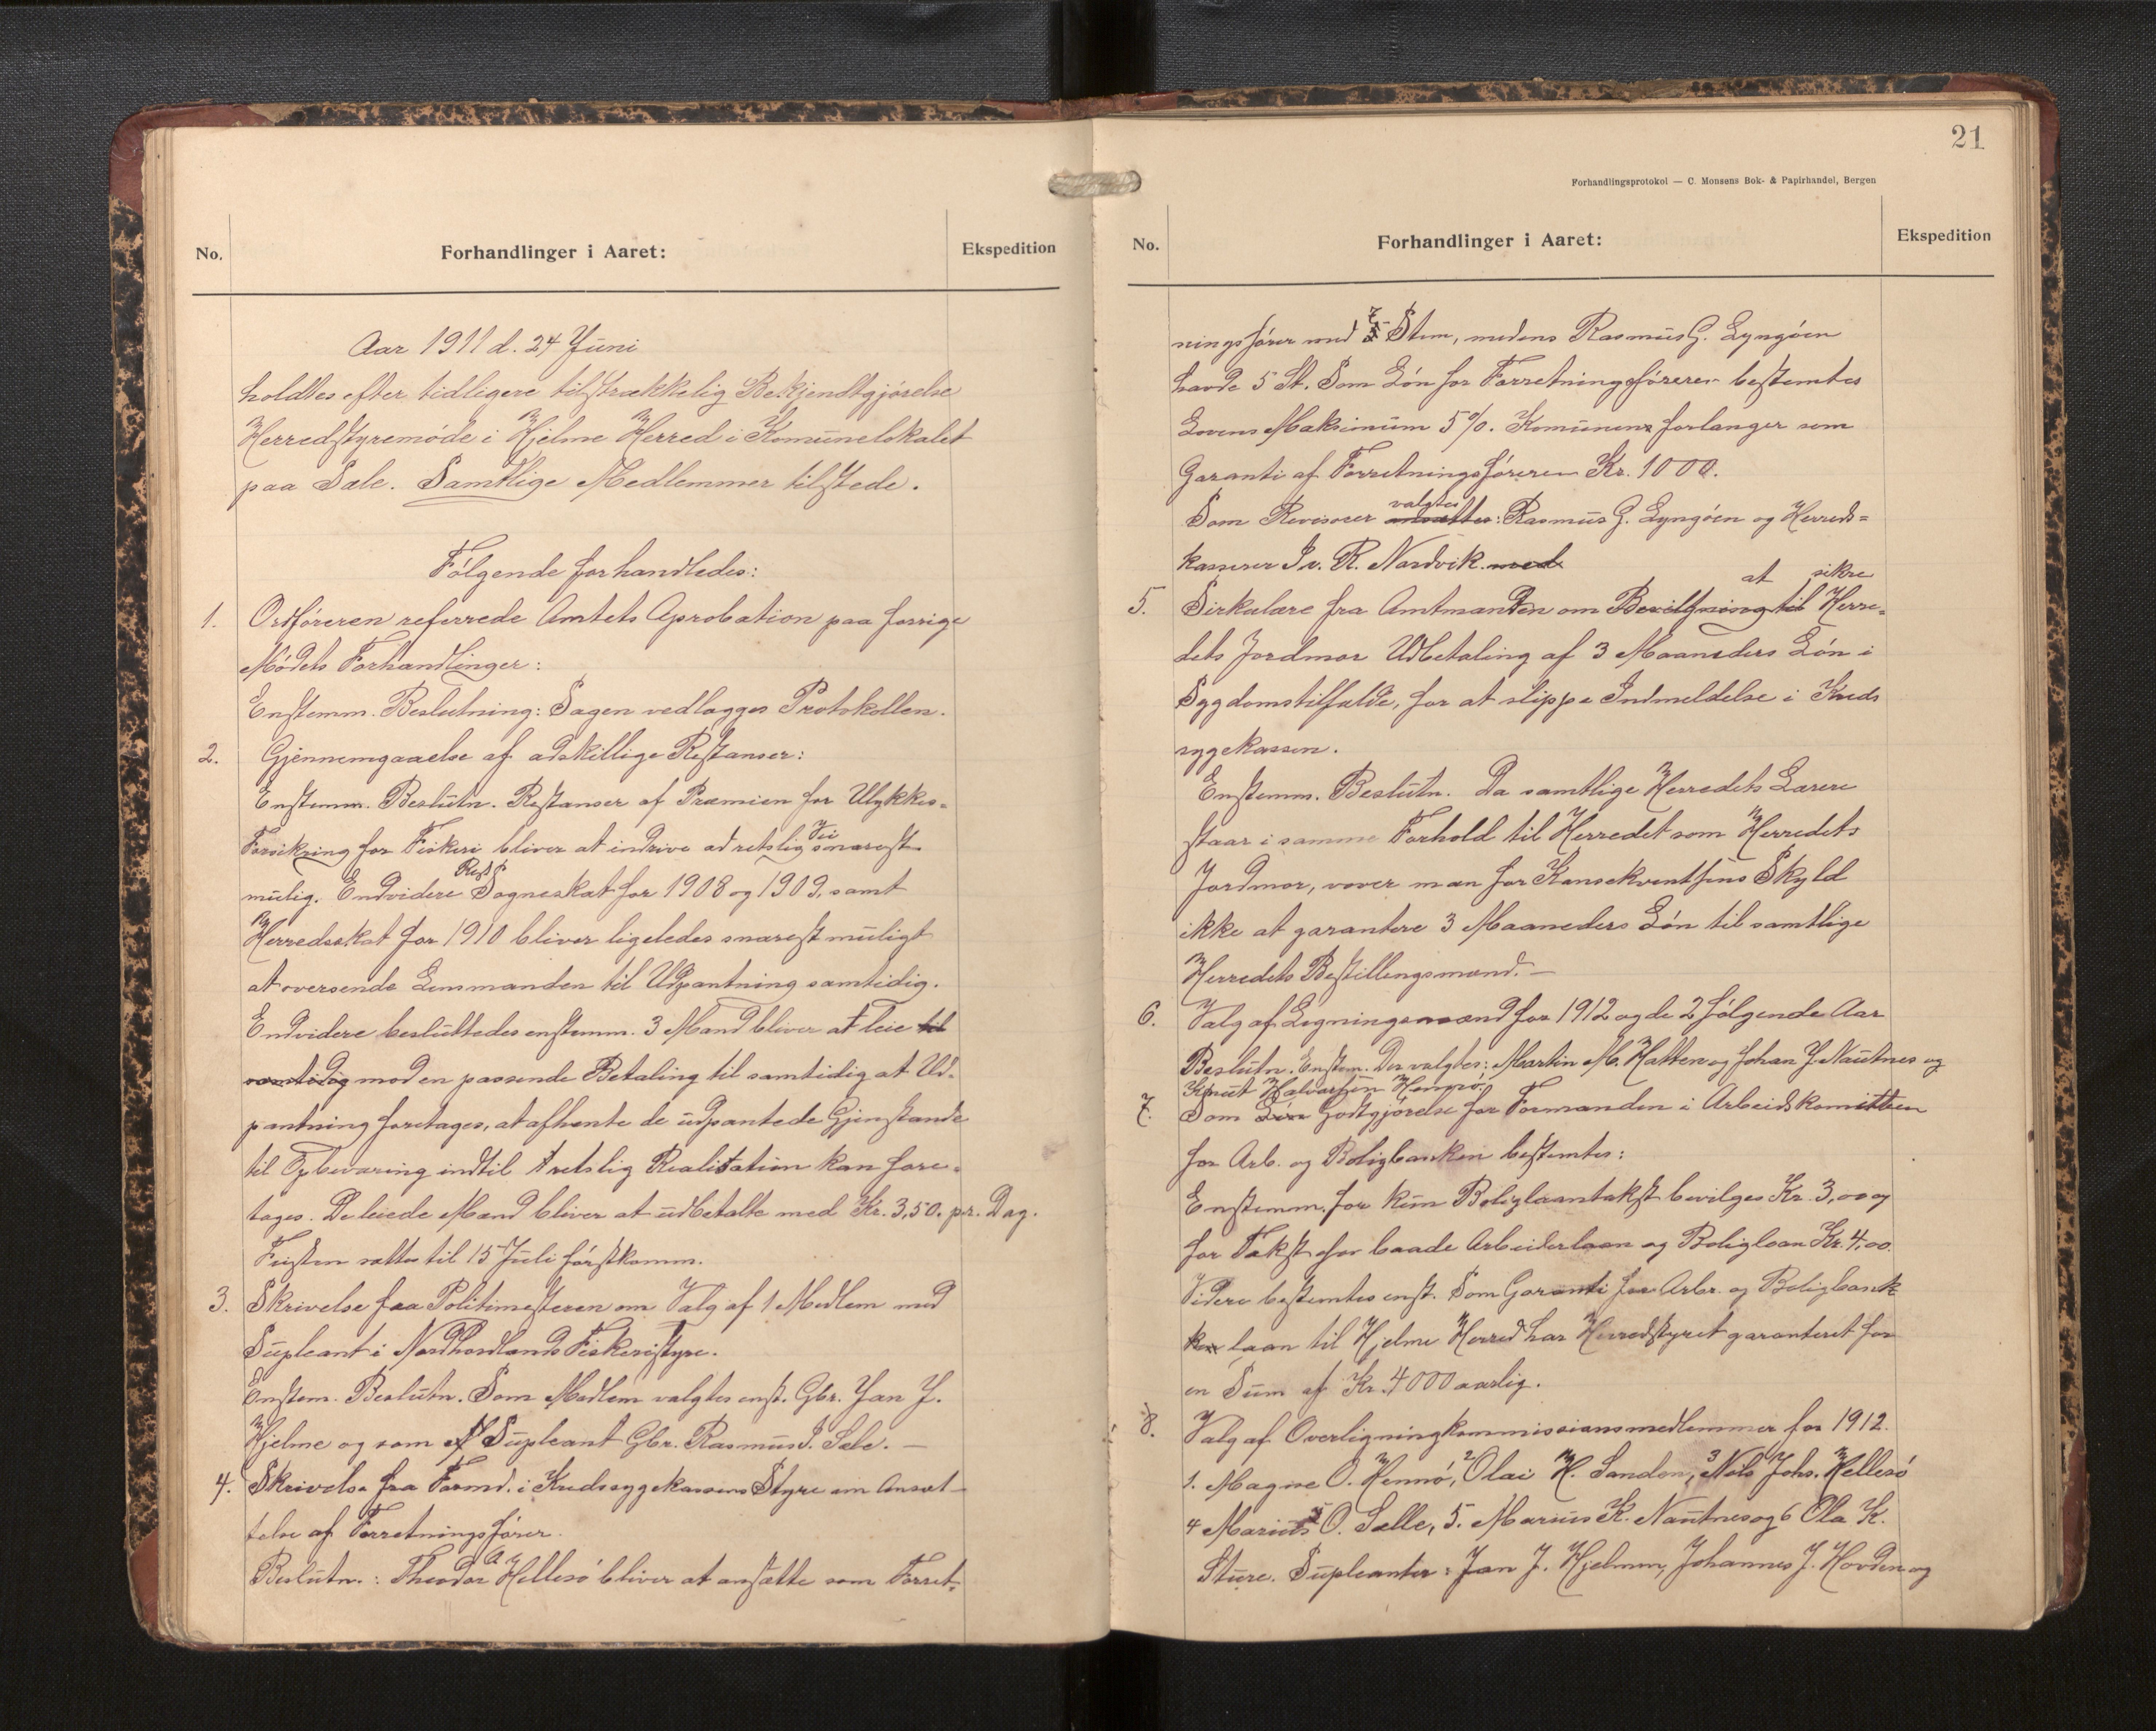 No. Forhandlinger i Aaret: Ekspedition
Aar 1911 d. 24 Juni
holdtes efter tidligere tilstrækkelig Bekjendtgjørelse
Herredstyremøde i Hjelme Herred i Komunelokalet
paa Sæle. Samtlige Medlemmer tilstede.
Følgende forhandledes:
1. Ordføreren referrede Amtets Aprobation paa forrige
Mødets Forhandlinger:
Enstemm. Beslutning: Sagen vedlægges Protokollen.
2. Gjennemgaaelse af adskillige Restanser:
Enstemm. Beslutn. Restanser af Præmien for Ulykkes-
Forsikring for Fiskeri bliver at indrive ad retslig Vei snarest
mulig. Endvidere Rest Sogneskat for 1908 og 1909, samt
Herredsskat for 1910 bliver ligeledes snarest muligt
at oversende Lensmanden til Udpantning samtidig.
Endvidere besluttedes enstemm. 3 Mand bliver at leie til
samtidig mod en passende Betaling til samtidig at Ud-
pantning foretages, at afhente de udpantede Gjenstande
til Opbevaring indtil retslig Realisation kan fore-
tages. De leiede Mænd bliver at udbetalte med Kr. 3,50. pr. Dag.
Fristen sættes til 15 Juli førstkomm.
3. Skrivelse fra Politimesteren om Valg af 1 Medlem med
Supleant i Nordhordlands Fiskeristyre.
Enstem. Beslutn. Som Medlem valgtes enst. Gbr. Jan J.
Hjelme og som Supleant Gbr. Rasmus I. Sæle. —
4. Skrivelse fra Formd. i Kredssygekassens Styre om Ansæt-
telse af Forretningsfører.
Beslutn.: Theodor A. Hellesø bliver at ansætte som Forret-
21
Forhandlingsprotokol — C. Monsens Bok- & Papirhandel, Bergen
No. Forhandlinger i Aaret: Ekspedition
ningsfører med 7 Stem, medens Rasmus G. Lyngøen
havde 5 St. Som Løn for Forretningsføreren bestemtes
Lovens Maksimum 5%. Komunen forlanger som
Garanti af Forretningsføreren Kr. 1000.
Som Revisorer ansættes valgtes: Rasmus G. Lyngøen og Herreds-
kasserer Iv. R. Nordvik med
5. Sirkulære fra Amtmanden om Bevilgning til at sikre Herre-
dets Jordmor Udbetaling af 3 Maaneders Løn i
Sygdomstilfælde, for at slippe Indmeldelse i Kreds
sygekassen.
Enstemm. Beslutn. Da samtlige Herredets Lærere
staar i samme Forhold til Herredet som Herredets
Jordmor, vover man for Konsekventsens Skyld
ikke at garantere 3 Maaneders Løn til samtlige
Herredets Bestillingsmænd. —
6. Valg af Ligningsmænd for 1912 og de 2 følgende Aar
Beslutn. Enstem. Der valgtes: Martin M. Hatten og Johan J. Nautnes og
Knut Halvorsen Hernø.
7. Som Løn Godtgjørelse for Formanden i Arbeidskomitteen
for Arb. og Boligbanken bestemtes:
Enstemm. for kun Boliglaantakst bevilges Kr. 3,00 og
for Takst for baade Arbeiderlaan og Boliglaan Kr. 4,00.
Videre bestemtes enst. Som Garanti for Arbr. og Boligbank
ken laan til Hjelme Herred har Herredstyret garanteret for
en Sum af Kr. 4000 aarlig.
8. Valg af Overligningkommissionsmedlemmer for 1912.
1. Magne O. Hernø, 2 Olai H. Sanden, 3 Nils Johs. Hellesø
4 Marius O. Sælle, 5. Marius K. Nautnes og 6 Ola K.
Sture. Supleanter: Jan J. Hjelmen, Johannes J. Hovden og